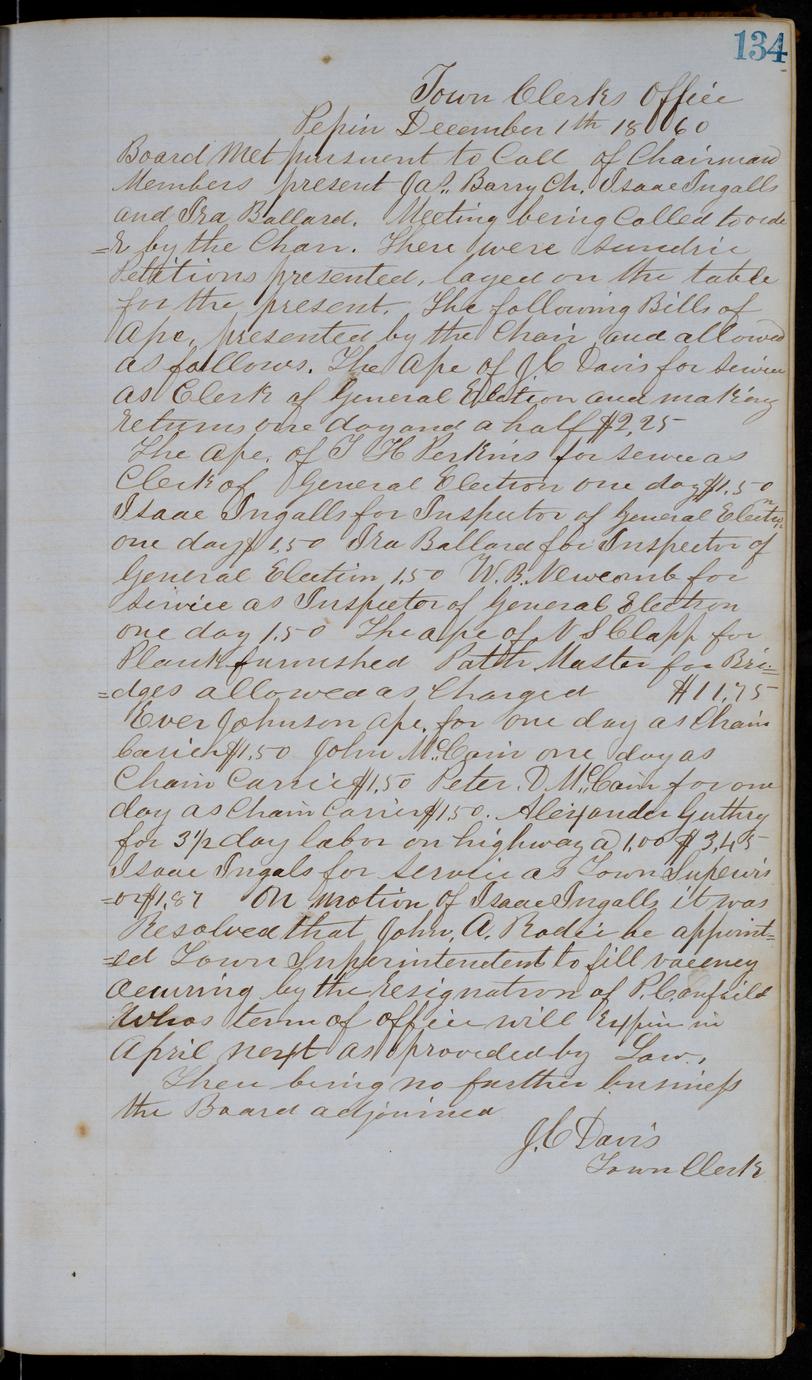 134
Town Clerks Office
Pepin December 1th 1860
Board Met pursuant to Call of Chairman
Members present Jas. Barry Ch. Isaac Ingalls
and Ira Ballard. Meeting being Called to orde
=r by the Chan. There were sundrie
Petitions presented, layed on the table
for the present. The following Bills of
Apc, presented by the Chair and allowed
as follows. The Apc of J C Davis for service
as Clerk of General Election and making
returns one day and a half $2,25
The Apc. of T H Perkins for servce as
Clerk of General Election one day $1.50
Isaac Ingalls for Inspector of General Electio,n
one day $1,50 Ira Ballard for Inspector of
General Election 1,50 W. B. Newcomb for
service as Inspector of General Election
one day 1.50 The apc of N S Clapp for
Plank furnished Path Master for Bri=
=dges allowed as Charged $11,75
Ever Johnson apc. for one day as Chain
Carier $1.50 John McCain one day as
Chain Carrie $1,50 Peter. D McCain for one
day as Chain Carrier $1,50. Alexander Guthry
for 3 1/2 day labor on highway a) 1,00 $3,45
Isaac Ingals for service as Town Supervis
=or $1,87 On motion of Isaac Ingalls it was
Resolved that John. A. Rodie be appoint=
=ed Town Superintendent to fill vacency
Acuring by the resignation of P. Canfield
Whos term of office will Expire in
April next as provided by Law.,
There being no further business
the Board adjourned
J. C Davis
Town Clerk